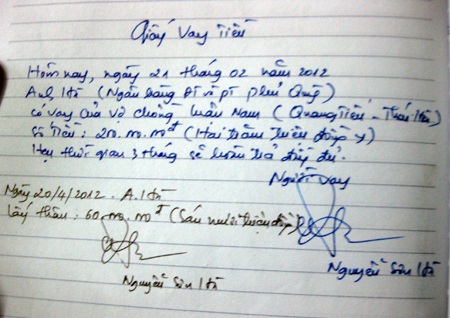 Giấy Vay Tiền
Hôm nay, ngày 21 tháng 02 năm 2012
A.Hà (Ngân hàng ĐT và PT Phú Quý)
có vay của vợ chồng Nam (Quang Tiến - Thái Hòa)
Số tiền: 200.000.000đ (Hai trăm triệu đồng)
Hẹn thời gian 3 tháng sẽ hoàn trả đầy đủ.
Người vay
Ngày 20/4/2012. A.Hà
lấy thêm: 60.000.000đ (Sáu mươi triệu đồng)
Nguyễn Sơn Hà
Nguyễn Sơn Hà